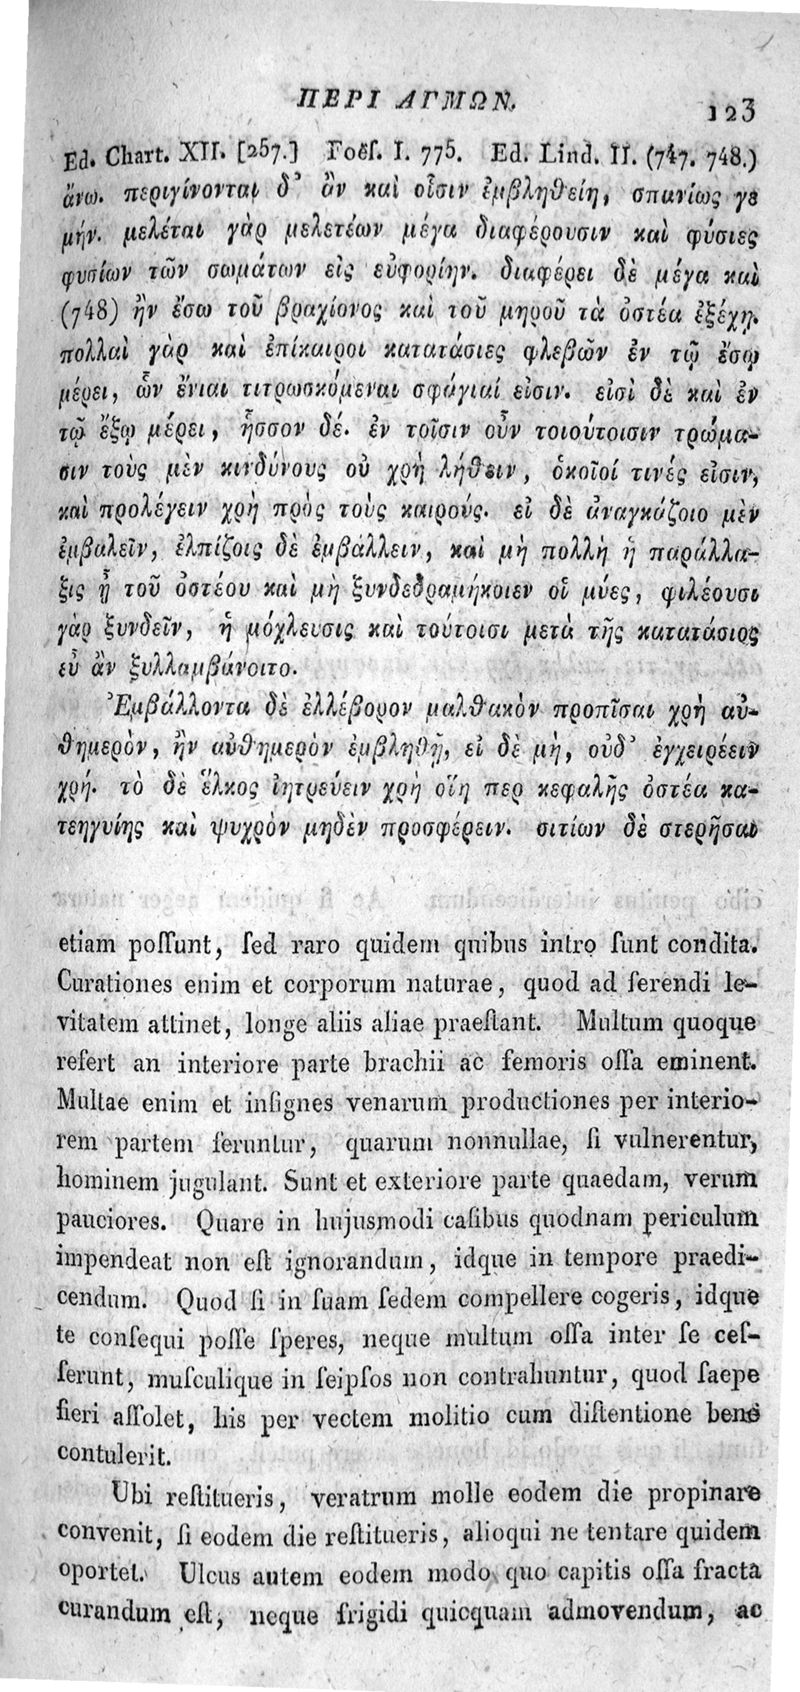 ΠΕΡΙ ΑΓΜΩΝ. 123
Ed. Chart. XII. [257.] Foëſ. I. 775. Ed. Lind. II. (747. 748.)
ἄνω. περιγίνονται δ' ἂν καὶ οἷσιν ἐμβληθείη, σπανίως γε
μήν. μελέται γὰρ μελετέων μέγα διαφέρουσιν καὶ φύσιες
φυσίων τῶν σωμάτων εἰς εὐφορίην. διαφέρει δὲ μέγα καὶ
(748) ἢν ἔσω τοῦ βραχίονος καὶ τοῦ μηροῦ τὰ ὀστέα ἐξέχῃ.
πολλαὶ γὰρ καὶ ἐπίκαιροι κατατάσιες φλεβῶν ἐν τῷ ἔσῳ
μέρει, ὧν ἔνιαι τιτρωσκόμεναι σφάγιαί εἰσιν. εἰσὶ δὲ καὶ ἐν
τῷ ἔξῳ μέρει, ἧσσον δέ. ἐν τοῖσιν οὖν τοιούτοισιν τρώμα-
σιν τοὺς μὲν κινδύνους οὐ χρὴ λήθειν, ὁκοῖοί τινές εἰσιν,
καὶ προλέγειν χρὴ πρὸς τοὺς καιρούς. εἰ δὲ ἀναγκάζοιο μὲν
ἐμβαλεῖν, ἐλπίζοις δὲ ἐμβάλλειν, καὶ μὴ πολλὴ ἡ παράλλα-
ξις ᾖ τοῦ ὀστέου καὶ μὴ ξυνδεδραμήκοιεν οἱ μύες, φιλέουσι
γὰρ ξυνδεῖν, ἡ μόχλευσις καὶ τούτοισι μετὰ τῆς κατατάσιος
εὖ ἂν ξυλλαμβάνοιτο.
Ἐμβάλλοντα δὲ ἐλλέβορον μαλθακὸν προπῖσαι χρὴ αὐ-
θημερὸν, ἢν αὐθημερὸν ἐμβληθῇ, εἰ δὲ μὴ, οὐδ' ἐγχειρέειν
χρή. τὸ δὲ ἕλκος ἰητρεύειν χρὴ οἵη περ κεφαλῆς ὀστέα κα-
τεηγυίης καὶ ψυχρὸν μηδὲν προσφέρειν. σιτίων δὲ στερῆσαι
etiam poſſunt, ſed raro quidem quibus intro ſunt condita.
Curationes enim et corporum naturae, quod ad ferendi le-
vitatem attinet, longe aliis aliae praeſtant. Multum quoque
refert an interiore parte brachii ac femoris oſſa eminent.
Multae enim et inſignes venarum productiones per interio-
rem partem feruntur, quarum nonnullae, ſi vulnerentur,
hominem jugulant. Sunt et exteriore parte quaedam, verum
pauciores. Quare in hujusmodi caſibus quodnam periculum
impendeat non eſt ignorandum, idque in tempore praedi-
cendum. Quod ſi in ſuam ſedem compellere cogeris, idque
te conſequi poſſe ſperes, neque multum oſſa inter ſe ceſ-
ſerunt, muſculique in ſeipſos non contrahuntur, quod ſaepe
fieri aſſolet, his per vectem molitio cum diſtentione bene
contulerit.
Ubi reſtitueris, veratrum molle eodem die propinare
convenit, ſi eodem die reſtitueris, alioqui ne tentare quidem
oportet. Ulcus autem eodem modo quo capitis oſſa fracta
curandum eſt, neque frigidi quicquam admovendum, ac